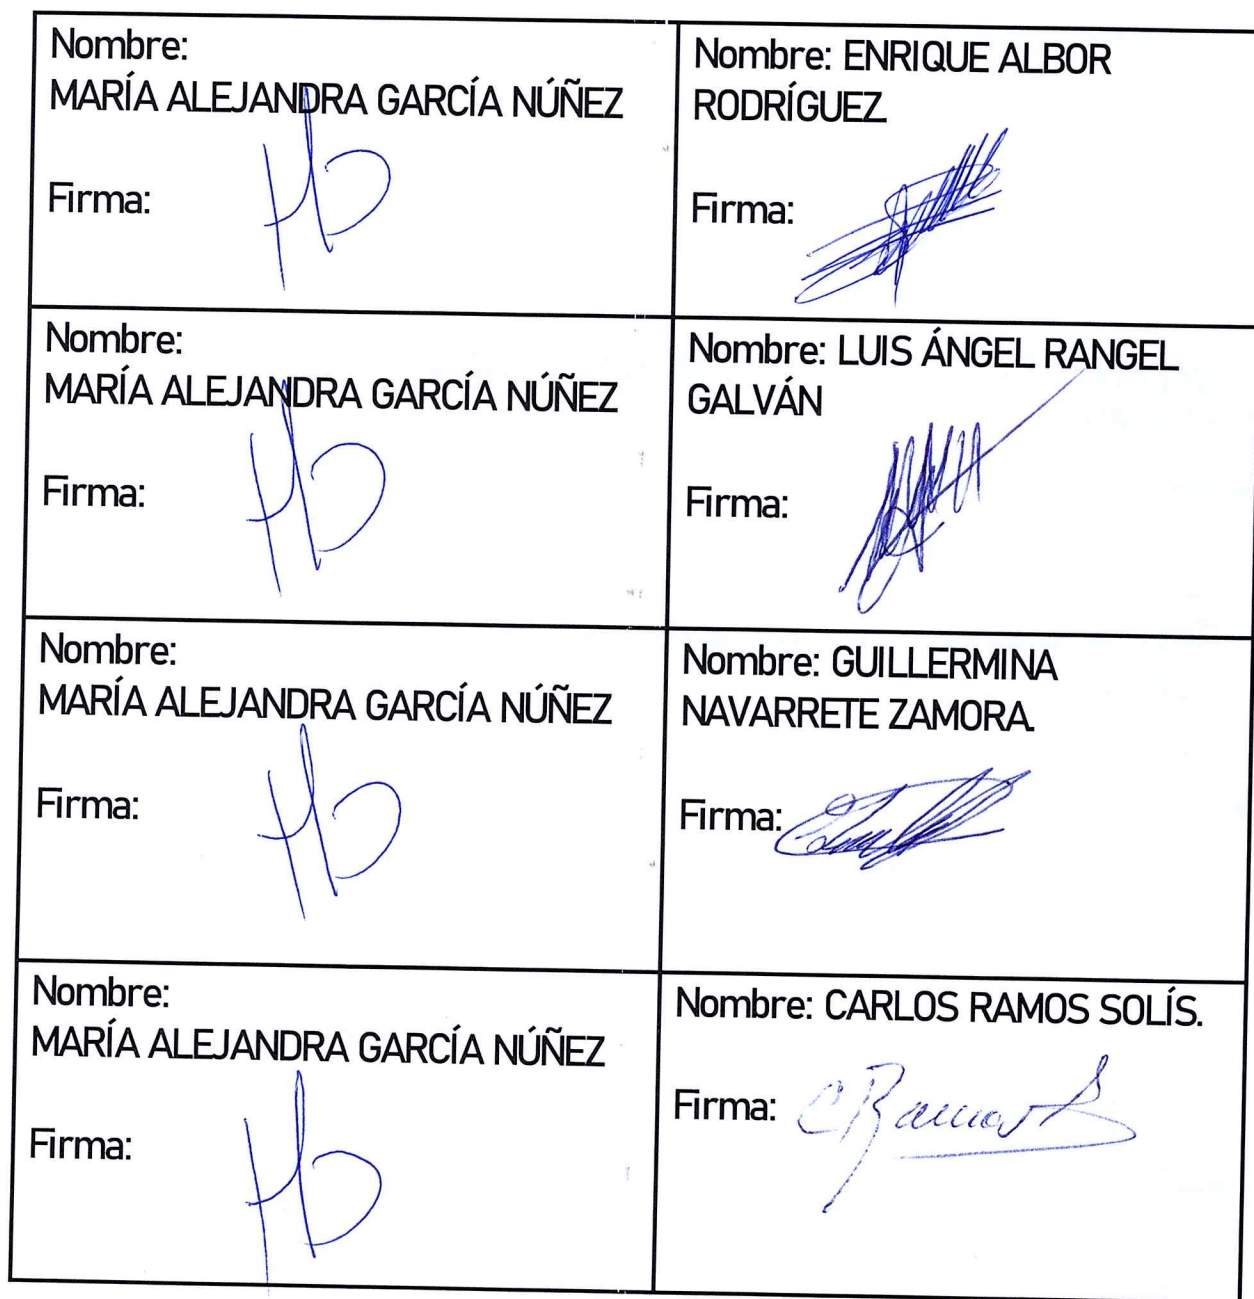 Nombre:
MARÍA ALEJANDRA GARCÍA NÚÑEZ
Firma:
Nombre: ENRIQUE ALBOR
RODRÍGUEZ
Firma:
Nombre:
MARÍA ALEJANDRA GARCÍA NÚÑEZ
Firma:
Nombre: LUIS ÁNGEL RANGEL
GALVÁN
Firma:
Nombre:
MARÍA ALEJANDRA GARCÍA NÚÑEZ
Firma:
Nombre: GUILLERMINA
NAVARRETE ZAMORA.
Firma:
Nombre:
MARÍA ALEJANDRA GARCÍA NÚÑEZ
Firma:
Nombre: CARLOS RAMOS SOLÍS.
Firma: C Ramos S